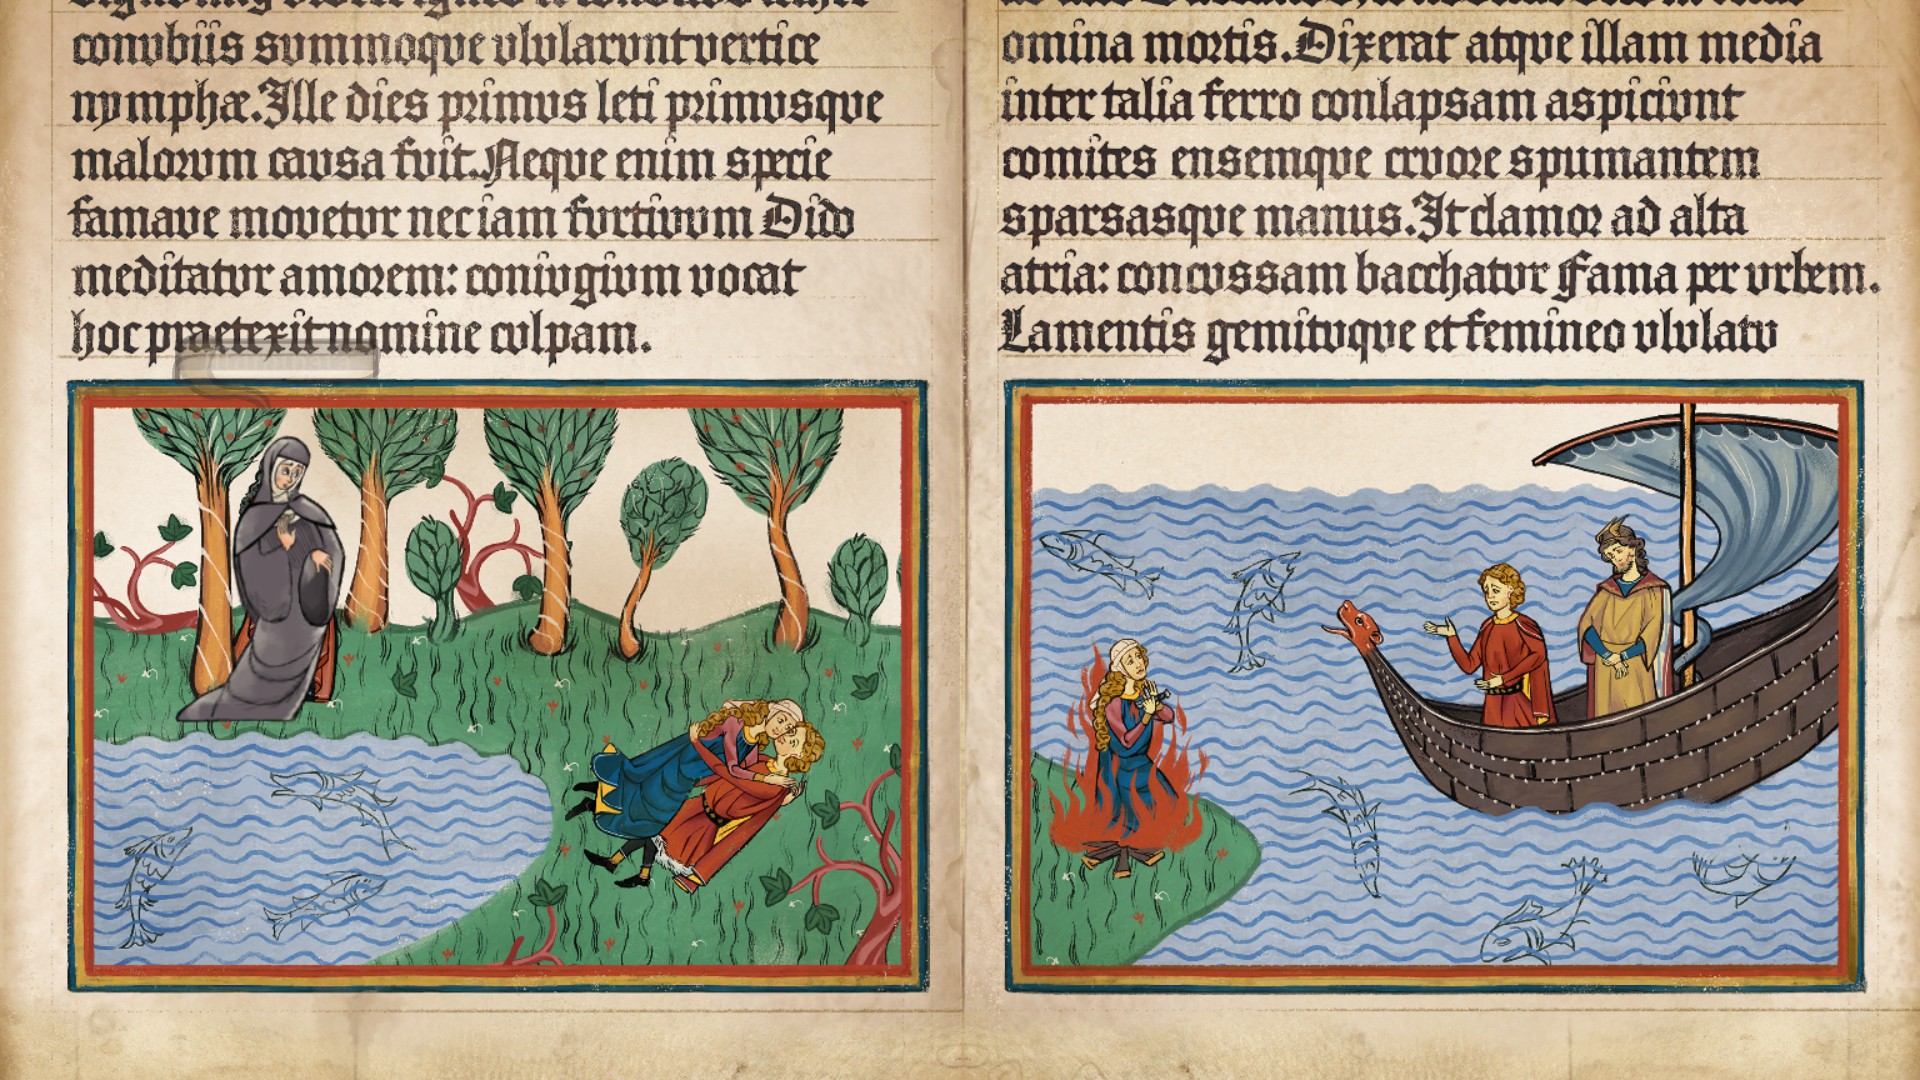 conubiis summoque ulularunt vertice
nymphæ. Ille dies primus leti primusque
malorum causa fuit. Neque enim specie
famave movetur nec iam furtivum Dido
meditatur amorem: coniugium vocat
hoc praetexit nomine culpam.
omina mortis. Dixerat atque illam media
inter talia ferro conlapsam aspiciunt
comites ensemque cruore spumantem
sparsasque manus. It clamor ad alta
atria: concussam bacchatur Fama per urbem.
Lamentis gemituque et femineo ululatu